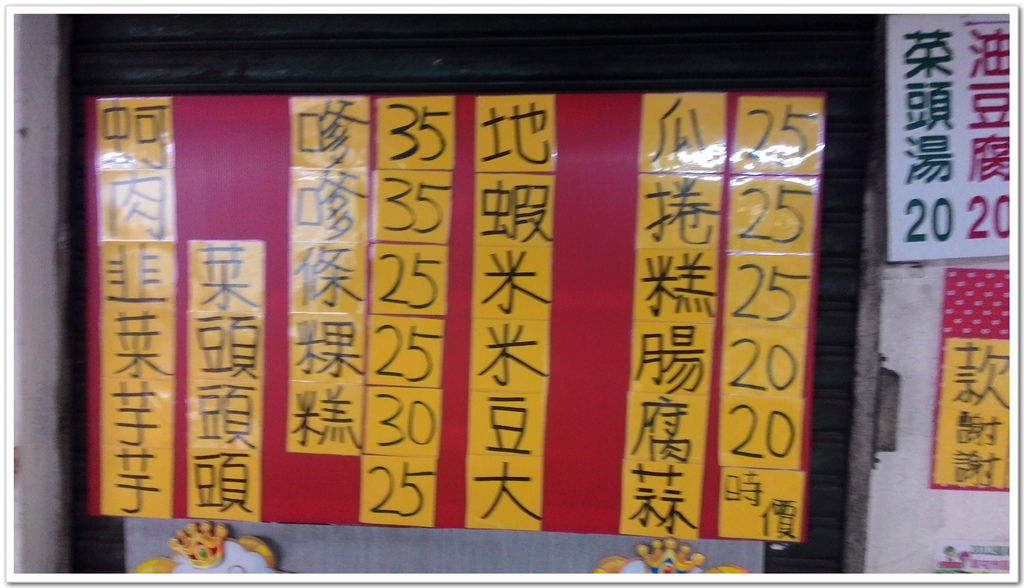 蚵 嗲 35
肉 嗲 35
韭菜條 25
菜頭粿 25
芋頭糕 30
芋頭 25
地瓜 25
蝦捲 25
米糕 25
米腸 20
豆腐 20
大蒜 時價
油豆腐 20
菜頭湯 20
款
謝謝